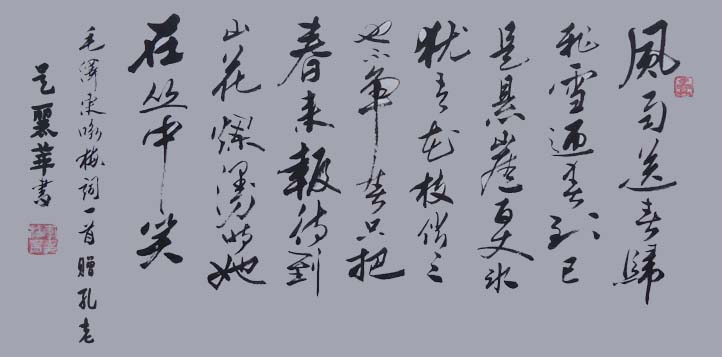 風雨送春歸
飛雪迎春到已
是懸崖百丈冰
犹有花枝俏〻
也不争春只把
春来報待到
山花爛漫时她
在丛中笑
毛泽東咏梅詞一首贈孔老
麗華書